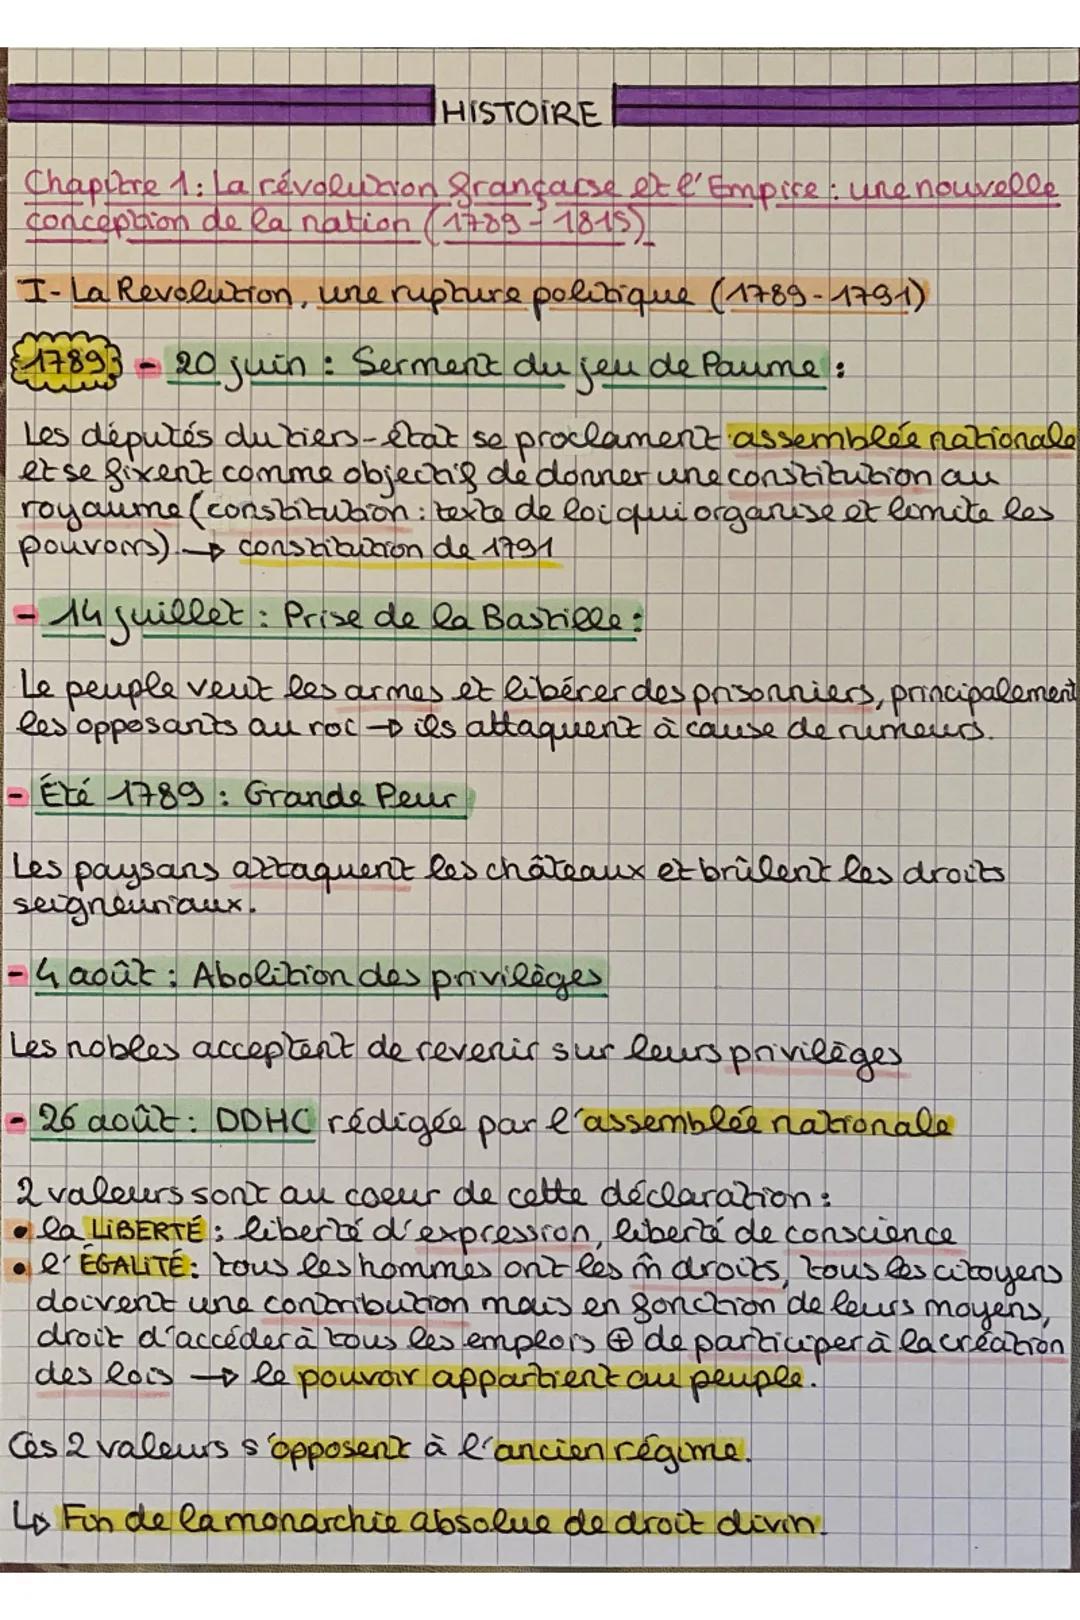 HISTOIRE
Chapitre 1: La révolution française et l'Empire : une nouvelle
conception de la nation (1789-1815)
I- La Revolution, une rupture politique (1789-1791)
1789: - 20 juin : Serment du jeu de Paume :
Les députés du tiers-état se proclament assemblée nationale
et se fixent comme objectif de donner une constitution au
royaume (constitution : texte de loi qui organise et limite les
pouvoirs) → constitution de 1791
- 14 juillet : Prise de la Bastille :
Le peuple veut les armes et libérer des prisonniers, principalement
les opposants au roi → ils attaquent à cause de rumeurs.
- Été 1789 : Grande Peur
Les paysans attaquent les châteaux et brûlent les droits
seigneuriaux.
- 4 août : Abolition des privilèges
Les nobles acceptent de revenir sur leurs privilèges
- 26 août : DDHC rédigée par l'assemblée nationale
2 valeurs sont au coeur de cette déclaration :
• la LIBERTÉ : liberté d'expression, liberté de conscience
• l'ÉGALITÉ : tous les hommes ont les m̂ droits, tous les citoyens
doivent une contribution mais en fonction de leurs moyens,
droit d'accéder à tous les emplois ⊕ de participer à la création
des lois → le pouvoir appartient au peuple.
Ces 2 valeurs s'opposent à l'ancien régime.
↳ Fin de la monarchie absolue de droit divin.